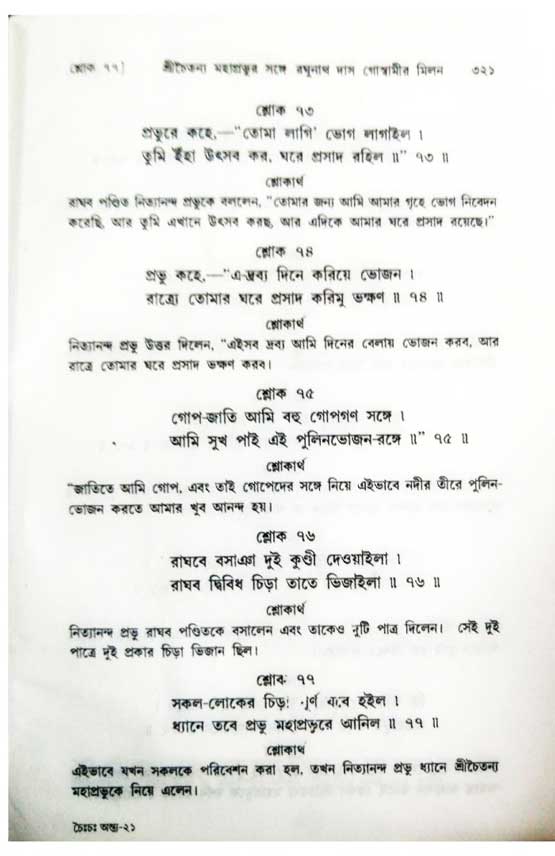 শ্লোক ৭৭]	শ্রীচৈতন্য মহাপ্রভুর সঙ্গে রঘুনাথ দাস গোস্বামীর মিলন	৩২১
শ্লোক ৭৩
প্রভুরে কহে,—“তোমা লাগি’ ভোগ লাগাইল ।
তুমি ইঁহা উৎসব কর, ঘরে প্রসাদ রহিল ॥” ৭৩ ॥
শ্লোকার্থ
রাঘব পণ্ডিত নিত্যানন্দ প্রভুকে বললেন, “তোমার জন্য আমি আমার গৃহে ভোগ নিবেদন
করেছি, আর তুমি এখানে উৎসব করছ, আর এদিকে আমার ঘরে প্রসাদ রয়েছে।”
শ্লোক ৭৪
প্রভু কহে,—“এ-দ্রব্য দিনে করিয়ে ভোজন ।
রাত্র্যে তোমার ঘরে প্রসাদ করিমু ভক্ষণ ॥ ৭৪ ॥
শ্লোকার্থ
নিত্যানন্দ প্রভু উত্তর দিলেন, “এইসব দ্রব্য আমি দিনের বেলায় ভোজন করব, আর
রাত্রে তোমার ঘরে প্রসাদ ভক্ষণ করব।
শ্লোক ৭৫
গোপ-জাতি আমি বহু গোপগণ সঙ্গে ।
আমি সুখ পাই এই পুলিনভোজন-রঙ্গে ॥” ৭৫ ॥
শ্লোকার্থ
“জাতিতে আমি গোপ, এবং তাই গোপেদের সঙ্গে নিয়ে এইভাবে নদীর তীরে পুলিন-
ভোজন করতে আমার খুব আনন্দ হয়।
শ্লোক ৭৬
রাঘবে বসাঞা দুই কুণ্ডী দেওয়াইলা ।
রাঘব দ্বিবিধ চিড়া তাতে ভিজাইলা ॥ ৭৬ ॥
শ্লোকার্থ
নিত্যানন্দ প্রভু রাঘব পণ্ডিতকে বসালেন এবং তাকেও দুটি পাত্র দিলেন। সেই দুই
পাত্রে দুই প্রকার চিড়া ভিজান ছিল।
শ্লোক ৭৭
সকল-লোকের চিড়া পূর্ণ যবে হইল ।
ধ্যানে তবে প্রভু মহাপ্রভুরে আনিল ॥ ৭৭ ॥
শ্লোকার্থ
এইভাবে যখন সকলকে পরিবেশন করা হল, তখন নিত্যানন্দ প্রভু ধ্যানে শ্রীচৈতন্য
মহাপ্রভুকে নিয়ে এলেন।
চৈঃচঃ অন্ত্য-২১